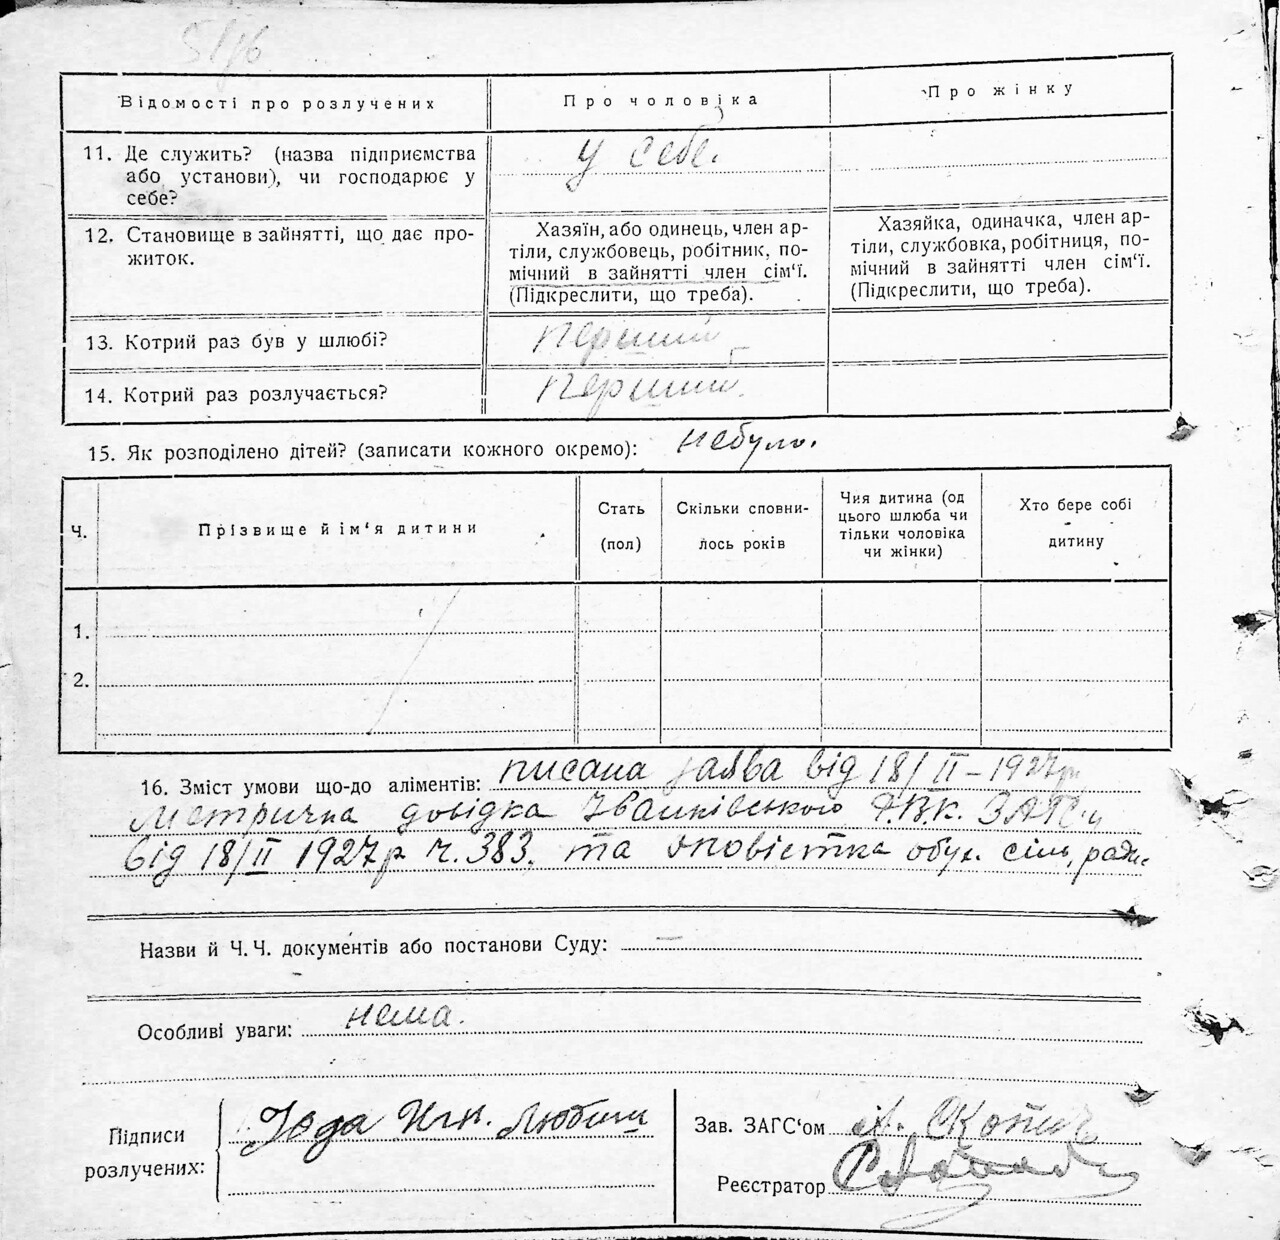 Відомості про розлучених
Про чоловіка
Про жінку
11. Де служить? (назва підприємства
або установи), чи господарює у
себе?
у себе.
12. Становище в зайнятті, що дає про-
житок.
Хазяїн, або одинець, член ар-
тіли, службовець, робітник, по-
мічний в зайнятті член сім‘ї.
(Підкреслити, що треба).
Хазяйка, одиначка, член ар-
тіли, службовка, робітниця, по-
мічний в зайнятті член сім‘ї.
(Підкреслити, що треба).
13. Котрий раз був у шлюбі?
перший
14. Котрий раз розлучається?
перший.
15. Як розподілено дітей? (записати кожного окремо): небуло.
Ч.
Прізвище й ім‘я дитини
Стать
(пол)
Скільки сповни-
лось років
Чия дитина (од
цього шлюба чи
тільки чоловіка
чи жінки)
Хто бере собі
дитину
1.
2.
16. Зміст умови що-до аліментів: писана заява від 18/II–1927р.
Метрична довідка Іванківського Р.В.К. ЗАГС‘у
від 18/II 1927р ч. 383, та оповістка сіль, ради
Назви й Ч.Ч. документів або постанови Суду: —
Особливі уваги: нема.
Підписи
розлучених:
Зав. ЗАГС‘ом
Реєстратор